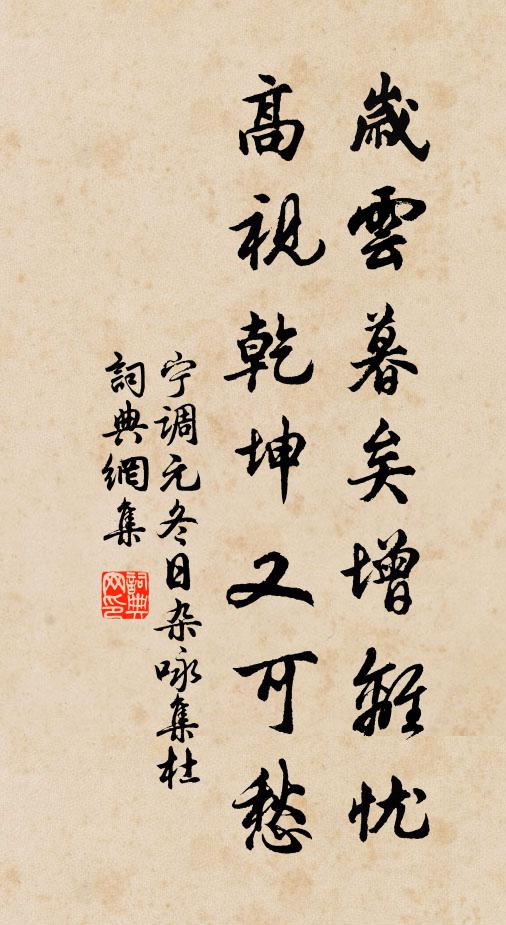 歲雲暮矣增離忧
高視乾坤又可愁
宁調元冬日杂咏集杜
詞典網集
詞典网印